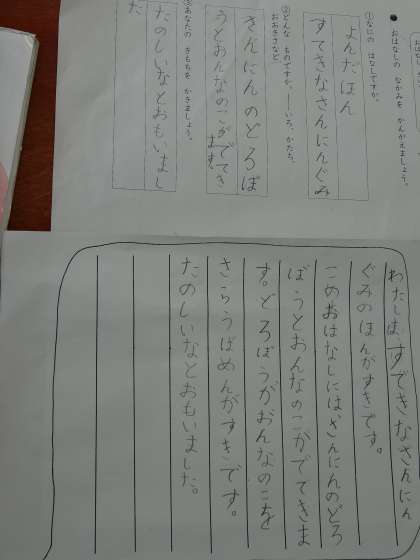 おはなしの なかみを かんがえましょう。
①なにの はなしですか。
よんだほん
すてきなさんにんぐみ
②どんな ものですか。——いろ、かたち、
おおきさなど
さんにんのどろぼ
うとおんなのこがでてき
ます。
③あなたの きもちを かきましょう。
たのしいなとおもいまし
た
わたしは、すてきなさんにん
ぐみのほんがすきです。
このおはなしには、さんにんのどろ
ぼうとおんなのこがでてきま
す。どろぼうがおんなのこを
さらうばめんがすきです。
たのしいなとおもいました。